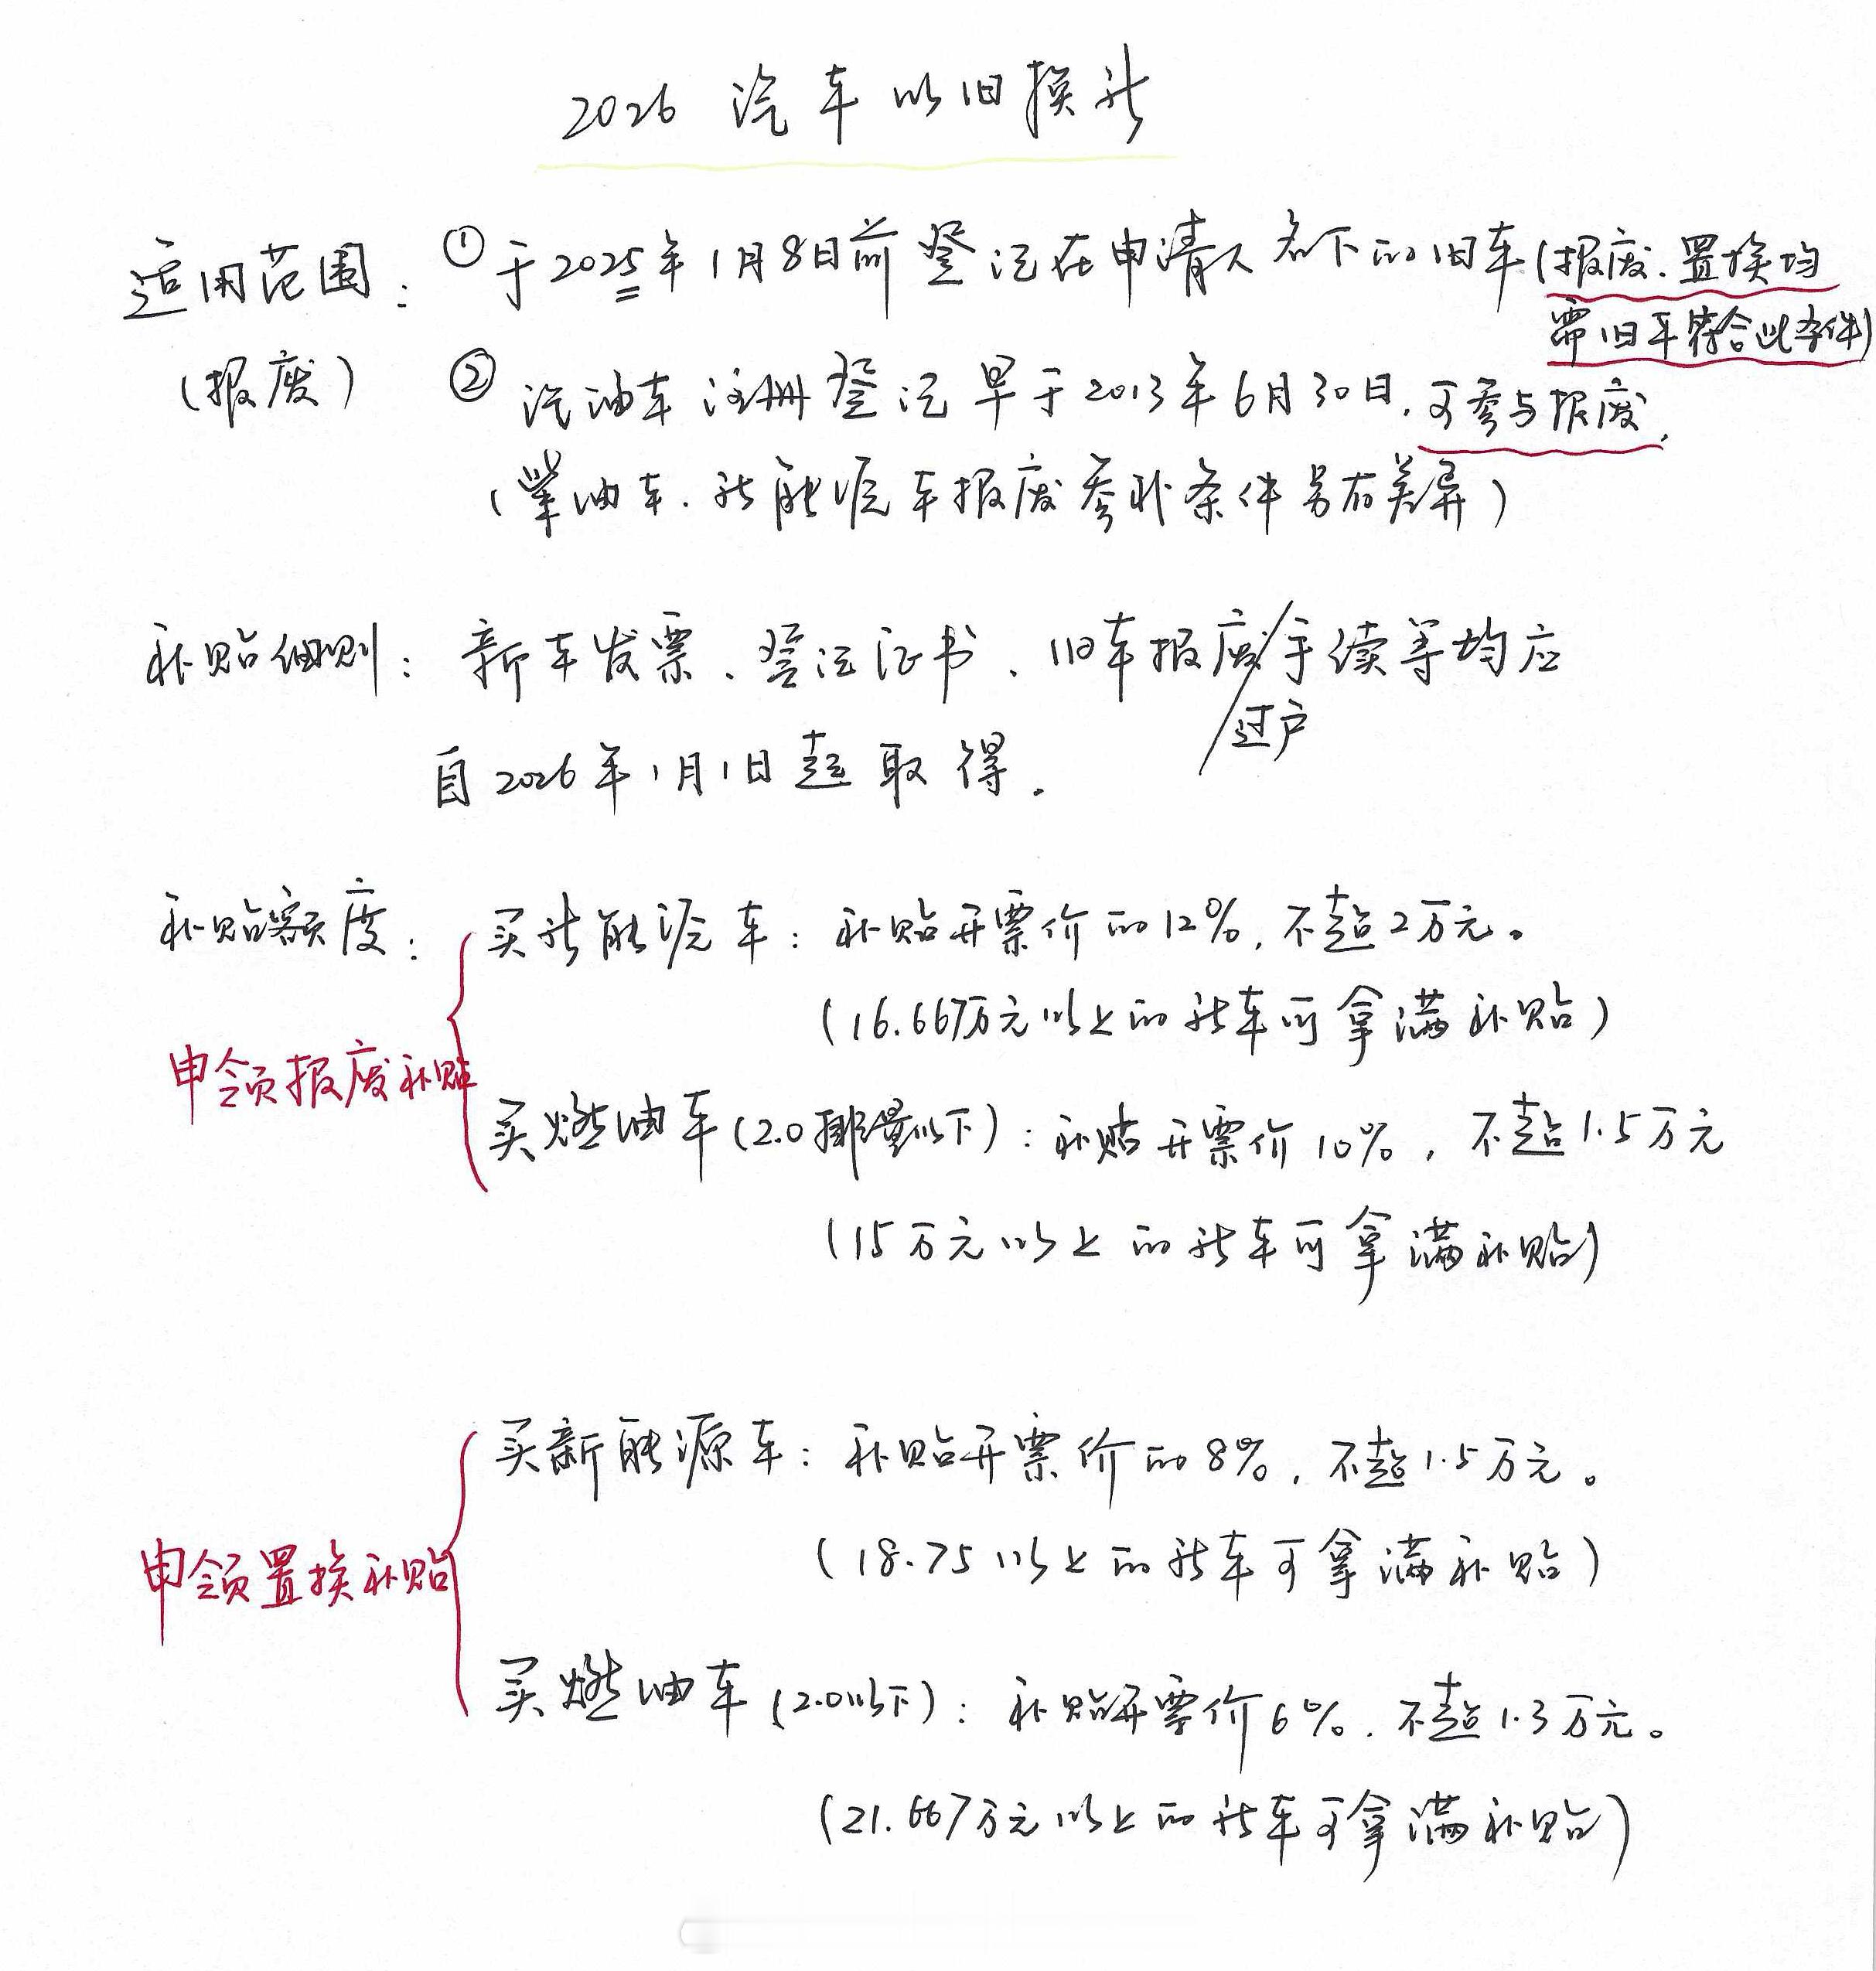 2026 汽车以旧换新
适用范围：①于2025年1月8日前登记在申请人名下的旧车(报废、置换均
需旧车符合此条件)
(报废) ②汽油车注册登记早于2013年6月30日，可参与报废，
(柴油车、新能源车报废参补条件另有差异)
补贴细则：新车发票、登记证书、旧车报废/手续等均应
/过户
自2026年1月1日起取得.
补贴额度：买新能源车：补贴开票价的12%，不超2万元。
(16.667万元以上的新车可拿满补贴)
申领报废补贴
买燃油车(2.0排量以下)：补贴开票价10%，不超1.5万元
(15万元以上的新车可拿满补贴)
买新能源车：补贴开票价的8%，不超1.5万元。
(18.75以上的新车可拿满补贴)
申领置换补贴
买燃油车(2.0以下)：补贴开票价6%，不超1.3万元。
(21.667万元以上的新车可拿满补贴)